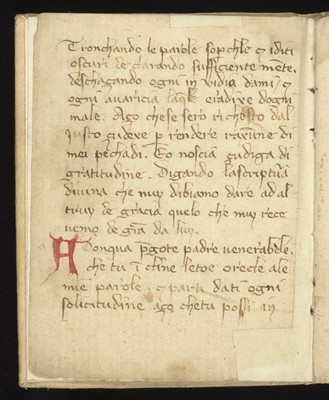 Tronchando le parole soperchle ⁊ iditi
oscuri dechiarando sufficiente mẽte,
deschaçando ogni in vidia dami ⁊
ogni avaricia laq̃le eradixe dogni
male. Aço che se sero richesto dal
justo çudexe ꝑ rendere raxone di
mei pechadi. Eo nosciã çudiga di
gratitudine. Digando la scriptura
divina che nuy dibiamo dare ad al
truy de gracia quelo che nuy rece
vemo de grã da luy.
Adonqua p̃gote padre venerabele,
che tu ĩchine le toe orecle ale
mie parole, ⁊ parti dati ogni
solicitudine aço che tu possi in